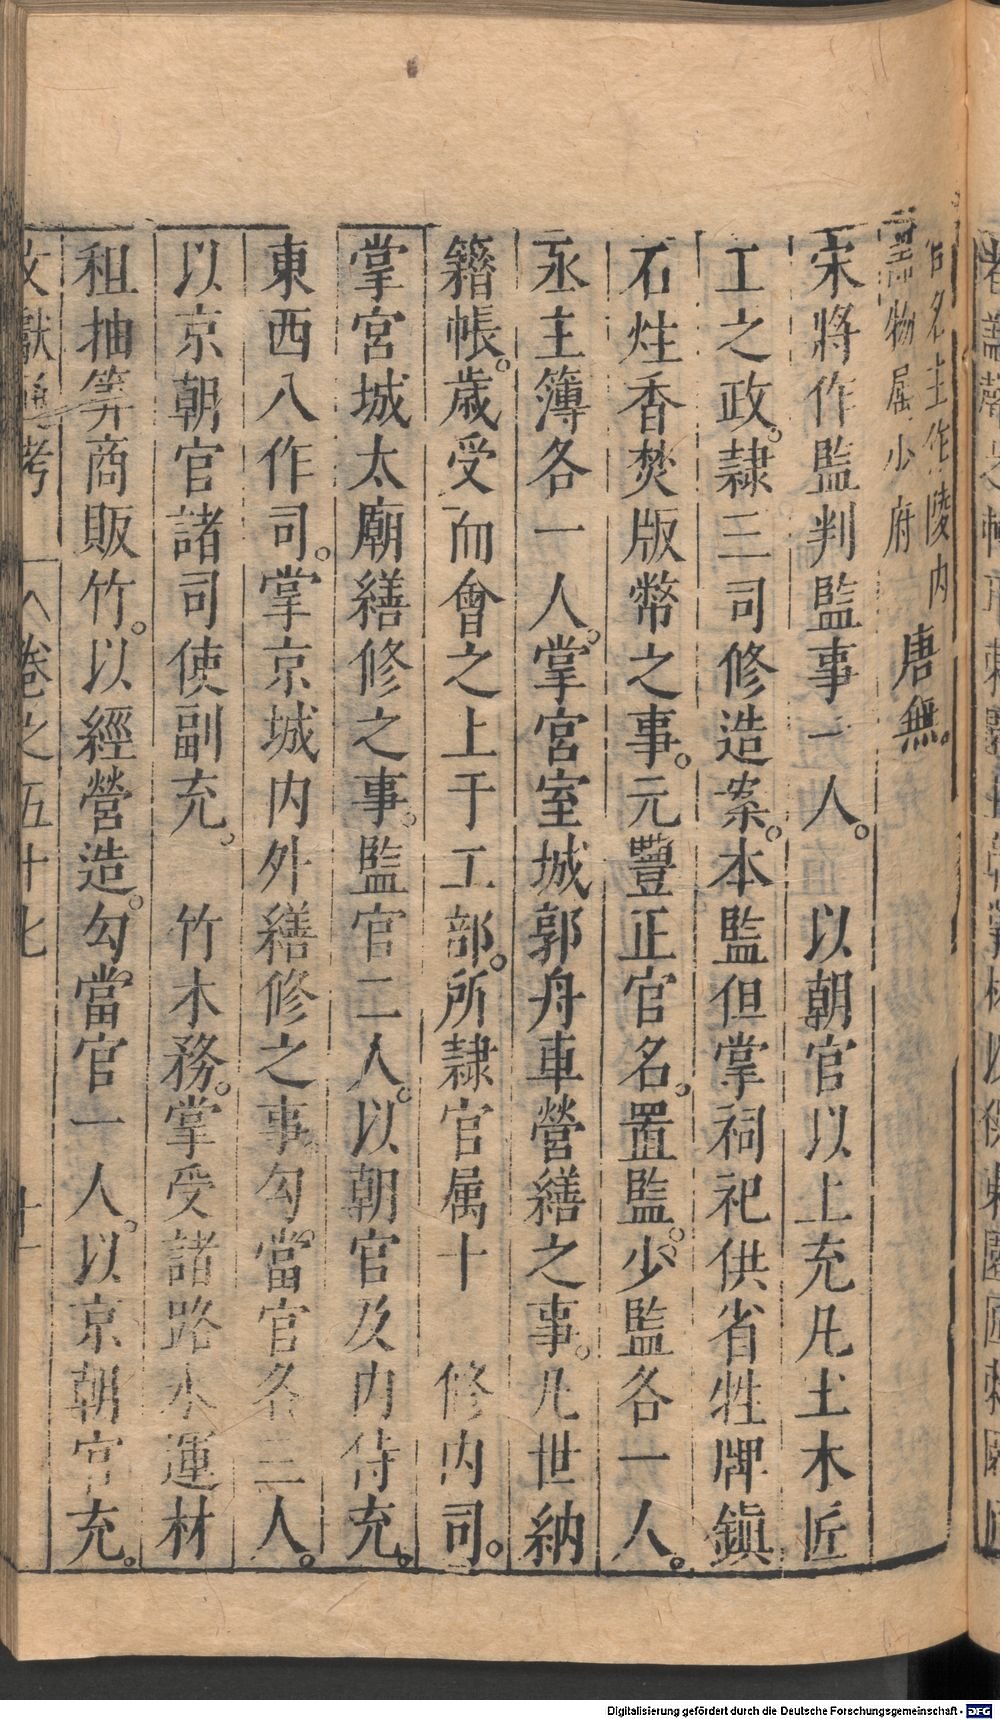 右名主作陵内
物屬少府　唐無。
宋將作監判監事一人。　以朝官以上充凡土木匠
工之政。隷三司修造案。本監但掌祠祀供省牲牌鎮
石炷香焚版幣之事。元豐正官名。置監。少監各一人。
丞主簿各一人。掌宮室城郭舟車營繕之事。凡世納
籍帳。歲受而會之上于工部。所隷官属十　修内司。
掌宮城太廟繕修之事。監官二人。以朝官及内侍充。
東西八作司。掌京城内外繕修之事勾。當官各二人。
以京朝官諸司使副充。　竹木務。掌受諸路水運材
租抽筭商販竹。以經營造。勾。當官一人。以京朝官充。
文獻通考　卷之五十七　十一
Digitalisierung gefördert durch die Deutsche Forschungsgemeinschaft - DFG